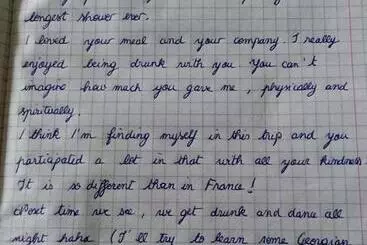 longest shower ever.
I loved your meal and your company. I really
enjoyed being drunk with you You can't
imagine how much you gave me, physically and
spiritually.
I think I'm finding myself in this trip and you
participated a lot in that with all your kindness
It is so different than in France!
Next time we see, we get drunk and dance all
night haha (I'll try to learn some Georgian